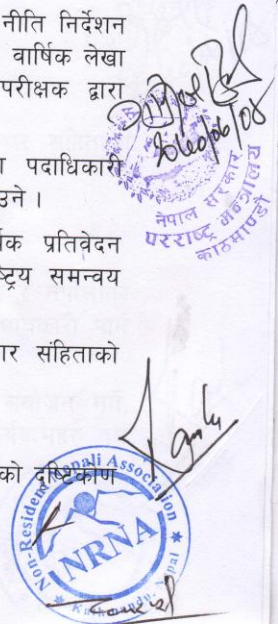 नीति निर्देशन
वार्षिक लेखा
परीक्षक द्वारा
पदाधिकारी
उने ।
र्षिक प्रतिवेदन
ष्ट्रिय समन्वय
ार संहिताको
को दृष्टिकोण
नेपाल सरकार
परराष्ट्र मन्त्रालय
काठमाण्डौ
Non-Resident Nepali Association
NRNA
Kathmandu, Nepal